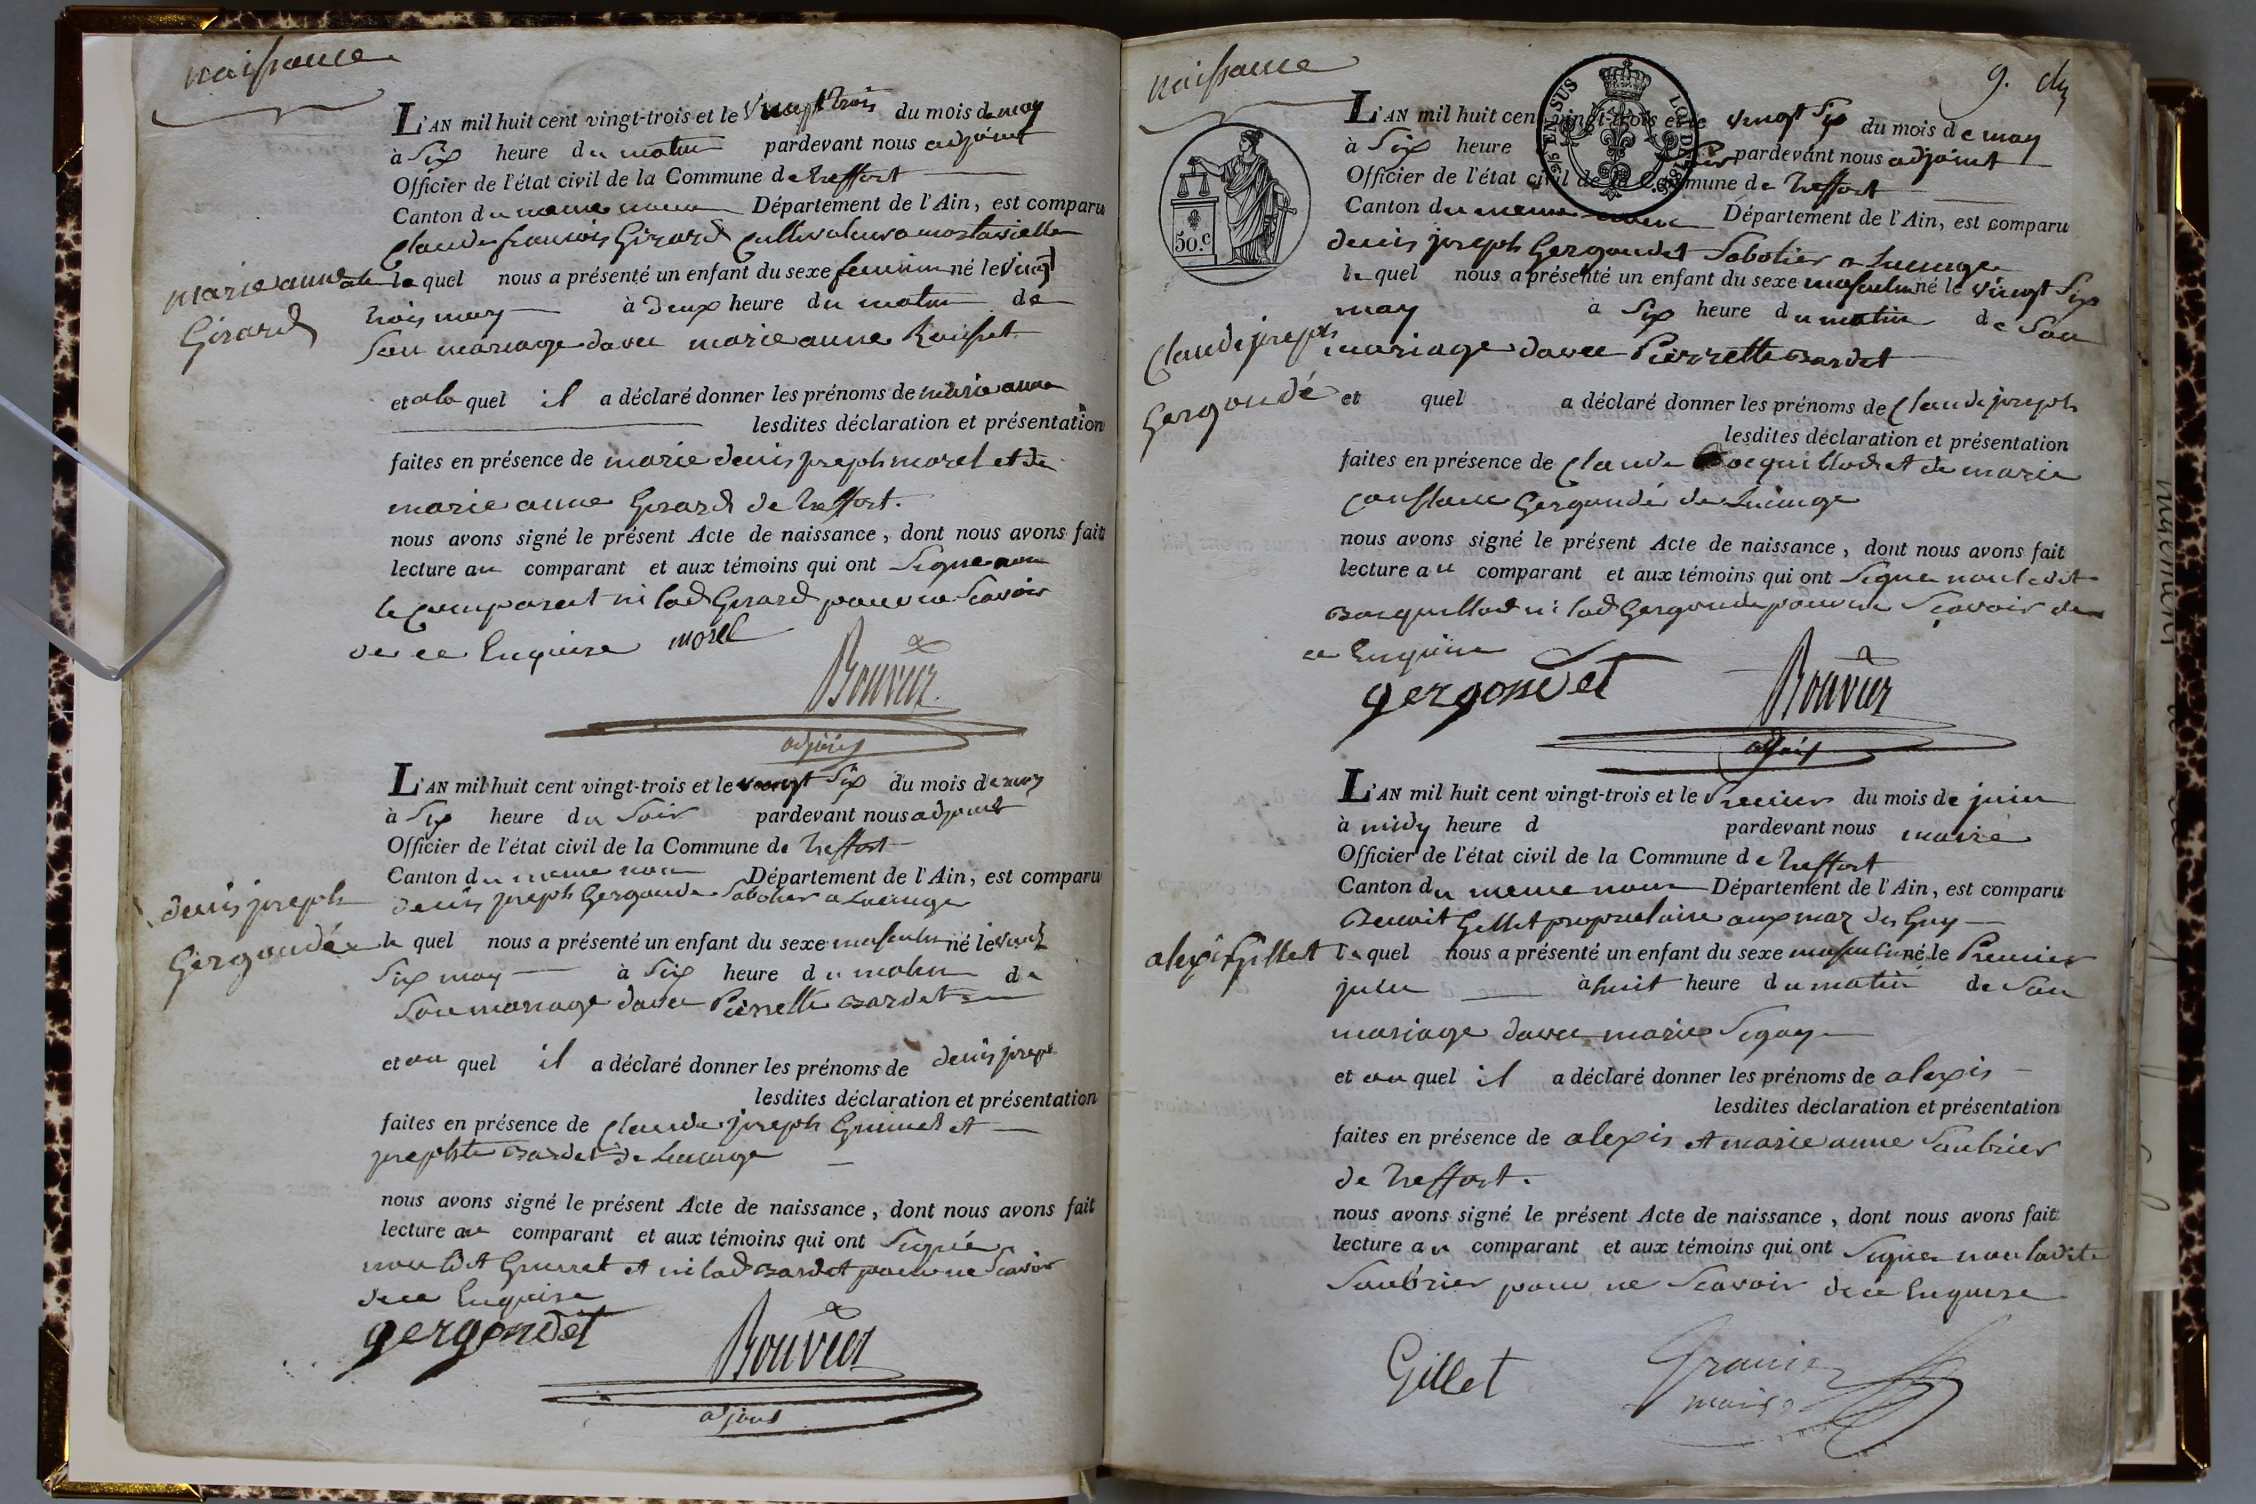 naissance
L'AN mil huit cent vingt-trois et le vingt trois du mois de may
à Six heure du matin pardevant nous adjoint
Officier de l'état civil de la Commune de treffort
Canton du meme nom Département de l'Ain, est comparu
Claude francois Girard Cultivateur a
marie anne
Girard
le quel nous a présenté un enfant du sexe feminin né le vingt
trois may à deux heure du matin de
Son mariage davec marie anne
et a la quel il a déclaré donner les prénoms de marie anne
lesdites déclaration et présentation
faites en présence de marie denis joseph morel et de
marie anne Girard de treffort.
nous avons signé le présent Acte de naissance, dont nous avons fait
lecture au comparant et aux témoins qui ont Signe non
le Comparant ni lad Girard pour ne Scavoir
de ce Enquise morel
Bouvier
adjoint
L'AN mil huit cent vingt-trois et le vingt Six du mois de may
à Six heure du Soir pardevant nous adjoint
Officier de l'état civil de la Commune de treffort
Canton du meme nom Département de l'Ain, est comparu
denis joseph Gergonde Sabotier a Lucinge
denis joseph
Gergondé
le quel nous a présenté un enfant du sexe masculin né le vingt
Six may à Six heure du matin de
Son mariage davec Pierrette Bardet
et au quel il a déclaré donner les prénoms de denis joseph
lesdites déclaration et présentation
faites en présence de Claude joseph et
josephte Bardet de Lucinge
nous avons signé le présent Acte de naissance, dont nous avons fait
lecture au comparant et aux témoins qui ont Signé
non ledit et ni lad Bardet pour ne Scavoir
de ce Enquise
gergondet
Bouvier
adjoint
naissance
9.
LOI DE 1816
EN SUS
50.c
L'AN mil huit cent vingt-trois et le vingt Six du mois de may
à Six heure pardevant nous adjoint
Officier de l'état civil de la Commune de treffort
Canton du meme nom Département de l'Ain, est comparu
denis joseph Gergondet Sabotier a Lucinge
le quel nous a présenté un enfant du sexe masculin né le vingt Six
may à Six heure du matin de Son
Claude joseph
Gergondé
mariage davec Pierrette Bardet
et quel a déclaré donner les prénoms de Claude joseph
lesdites déclaration et présentation
faites en présence de Claude Bocquillod et de marie
Constance Gergondé de Lucinge
nous avons signé le présent Acte de naissance, dont nous avons fait
lecture au comparant et aux témoins qui ont Signe non ledit
Bocquillod ni lad Gergonde pour ne Scavoir de
ce Enquise
gergondet
Bouvier
adjoint
L'AN mil huit cent vingt-trois et le Premier du mois de juin
à midy heure d pardevant nous maire
Officier de l'état civil de la Commune de treffort
Canton du meme nom Département de l'Ain, est comparu
Benoit Gillet proprietaire aux maz des Guy
alexis Gillet
le quel nous a présenté un enfant du sexe masculin né le Premier
juin à huit heure du matin de Son
mariage davec marie Sigay
et au quel il a déclaré donner les prénoms de alexis
lesdites déclaration et présentation
faites en présence de alexis et marie anne Saubrier
de treffort.
nous avons signé le présent Acte de naissance, dont nous avons fait
lecture au comparant et aux témoins qui ont Signer non ladite
Saubrier pour ne Scavoir de ce Enquise
Gillet
maire